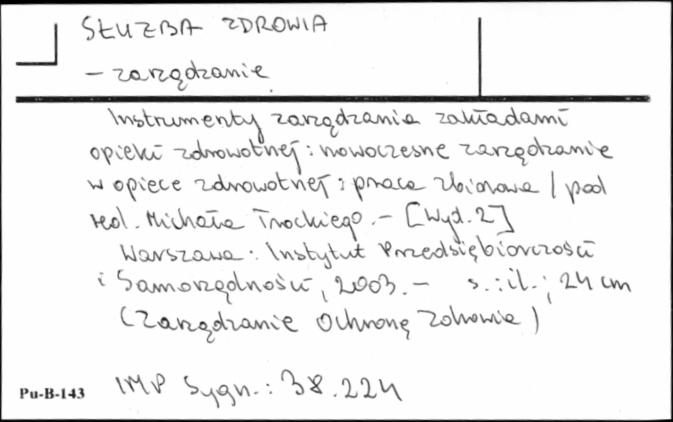 SŁUŻBA ZDROWIA
– zarządzanie
Instrumenty zarządzania zakładami
opieki zdrowotnej : nowoczesne zarządzanie
w opiece zdrowotnej : praca zbiorowa / pod
red. Michała Trockiego. – [Wyd. 2]
Warszawa : Instytut Przedsiębiorczości
i Samorządności, 2003. – s. : il. ; 24 cm
(Zarządzanie Ochroną Zdrowia)
Pu-B-143 IMP Sygn.: 38.224